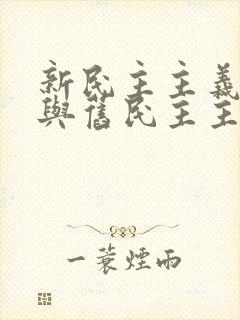 新民主主義
與舊民主主
一蓑煙雨